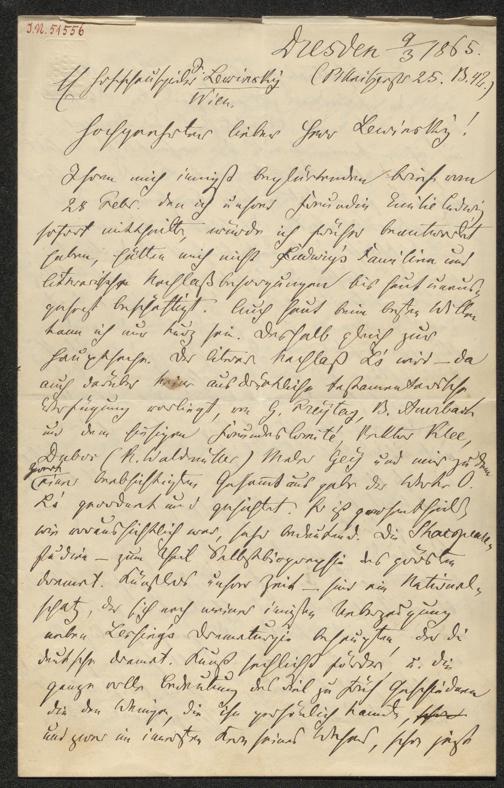 J.N. 54556
Dresden 9/3 1865.
H Hofschauspieler Lewinsky
Wien.
Hochgeehrter lieber Herr Lewinsky!
Ihren mich innigst beglückenden Brief vom
28 Febr. den ich unsrer Freundin Emilie Ludwig
sofort mittheilte, würde ich früher beantwortet
haben, hätten mich nicht Ludwigs Familien und
literarische Nachlaßbesorgungen bis heut unaus-
gesetzt beschäftigt. Auch heut beim besten Willen
kann ich nur kurz sein. Deshalb gleich zur
Hauptsache. Der literar. Nachlaß L's wird – da
auch darüber keine ausdrückliche testamentarische
Verfügung vorliegt, von G. Freytag, B. Auerbach
und dem hiesigen Rektor Klee,
Duboc (R. Waldmüller) Maler und mir zu
einer beabsichtigten Gesamtausgabe der Werke O.
L's geordnet und gesichtet. Er ist
wie vorauszusehen war, sehr bedeutend. Die Shakespeare-
studien – zum Theil Selbstbiographie des größten
dramat. Künstlers unsrer Zeit – sind ein National-
schatz, der sich nach meiner innigsten Ueberzeugung
neben Lessings Dramaturgie behaupten, der die
deutsche dramat. Kunst fördern u. die
ganze volle Bedeutung des viel zu früh Geschiedenen
die den Wenigen, die Ihn persönlich kannten,
und zwar im innersten Kern seines Wesens, schon jetzt